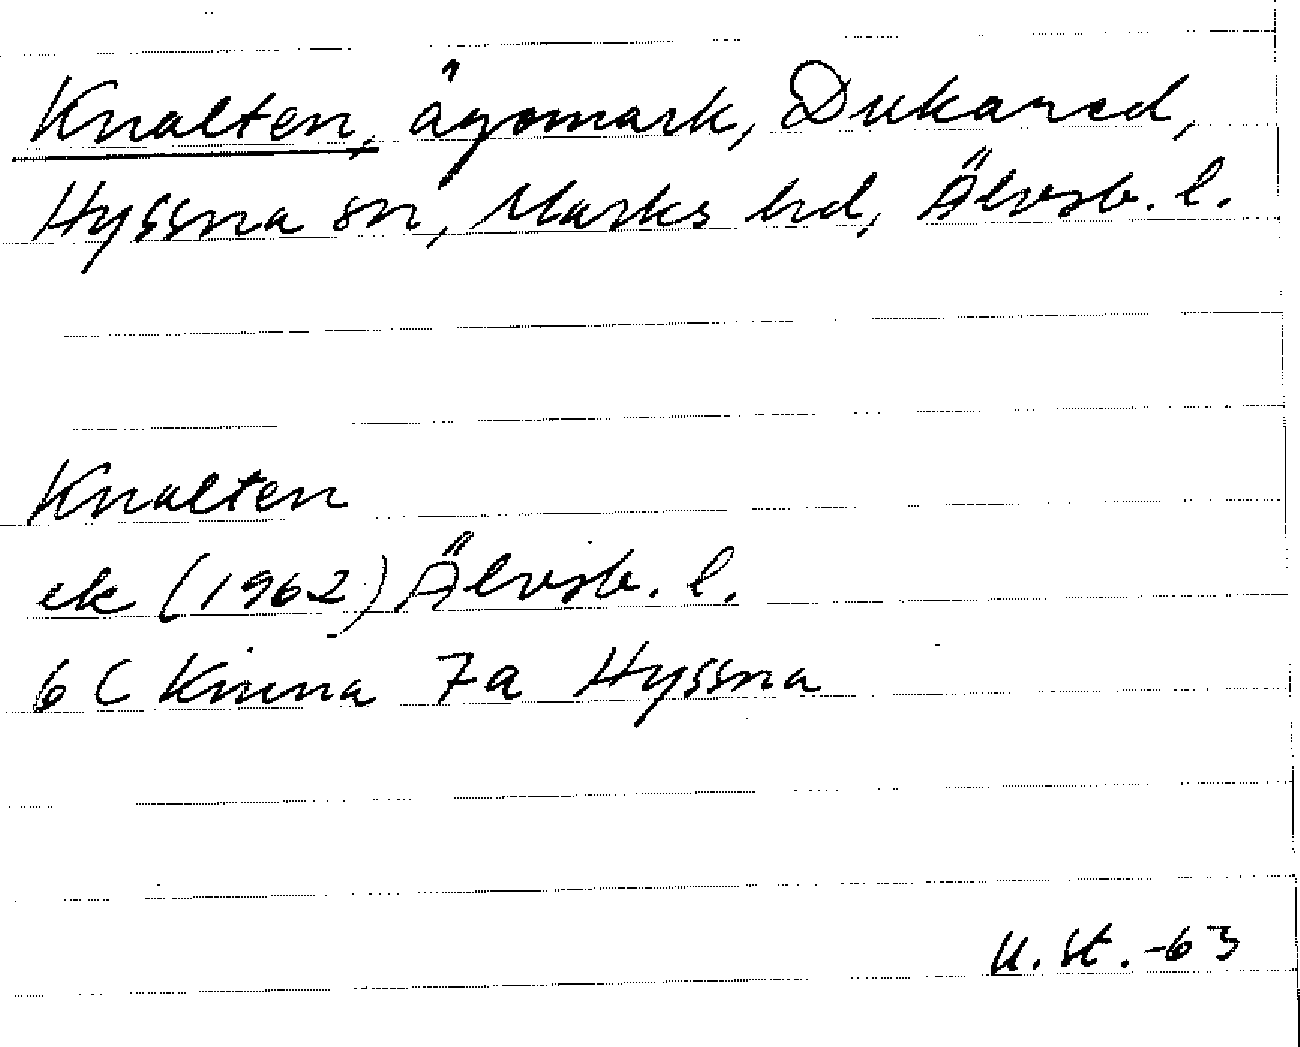 Knalten, ägomark, Dukared,
Hyssna sn, Marks hd, Älvsb. l.
Knalten
ek (1962) Älvsb. l.
6 C Kinna 7a Hyssna
U. St. -63